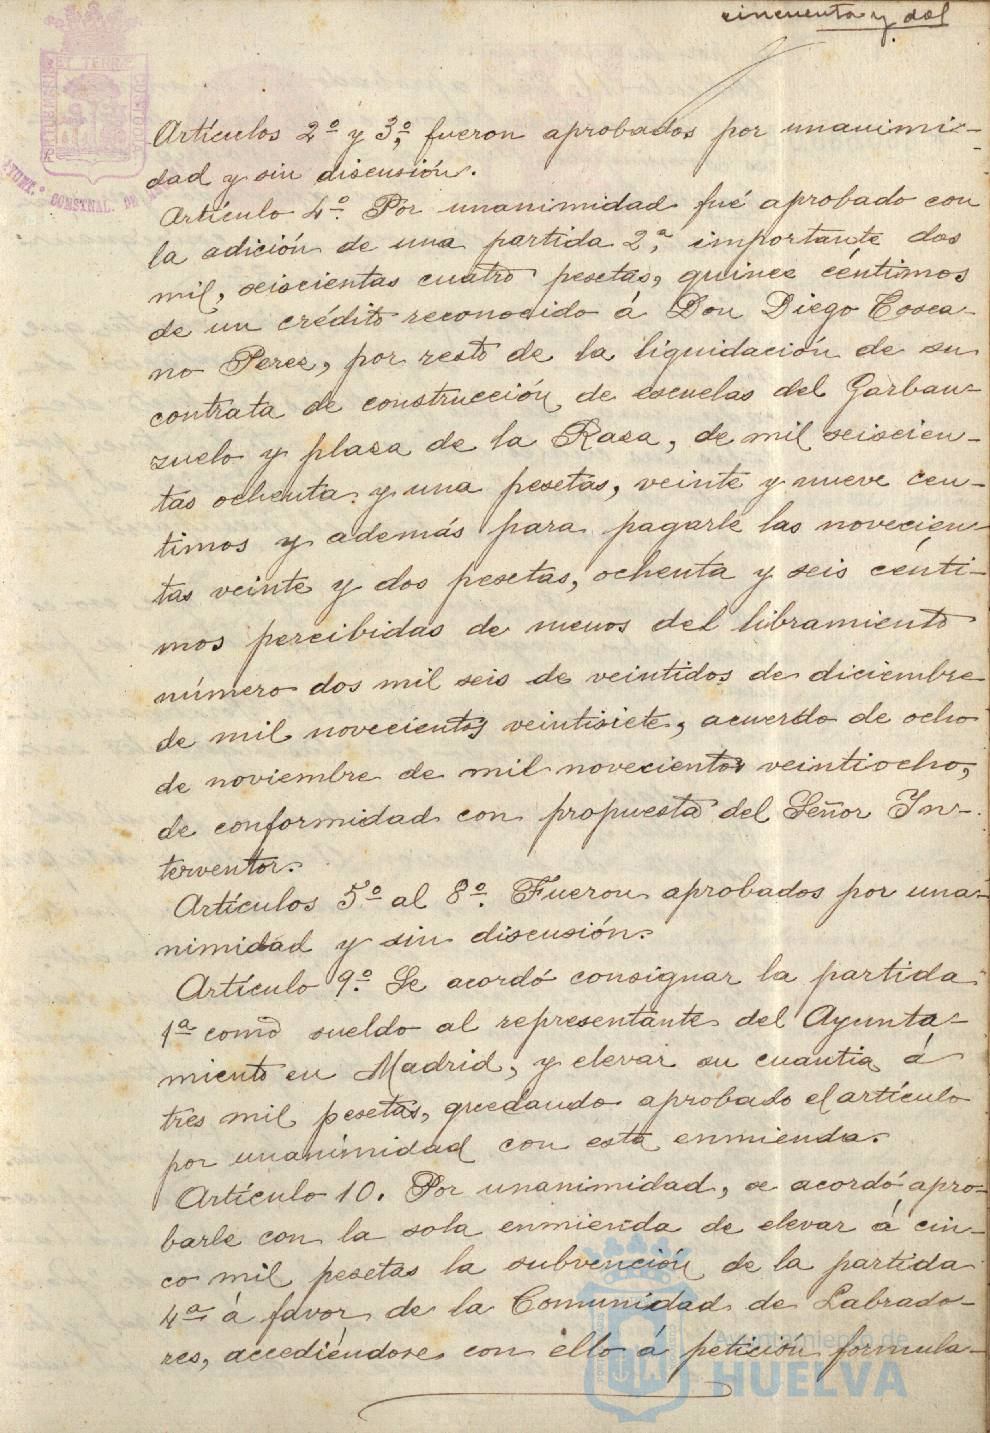 cincuenta y dos
Artículos 2º y 3º, fueron aprobados por unanimi-
dad y sin discusión.
Artículo 4º. Por unanimidad fué aprobado con
la adición de una partida 2ª, importante dos
mil, seiscientas cuatro pesetas, quince céntimos
de un crédito reconocido á Don Diego Tosca-
no Perez, por resto de la liquidación de su
contrata de construcción de escuelas del Garban-
zuelo y plaza de la Rasa, de mil seiscien-
tas ochenta y una pesetas, veinte y nueve cen-
timos y además para pagarle las novecien-
tas veinte y dos pesetas, ochenta y seis cénti-
mos percibidas de menos del libramiento
número dos mil seis de veintidos de diciembre
de mil novecientos veintisiete, acuerdo de ocho
de noviembre de mil novecientos veintiocho,
de conformidad con propuesta del Señor In-
terventor.
Artículos 5º al 8º. Fueron aprobados por una-
nimidad y sin discusión.
Artículo 9º. Se acordó consignar la partida
1ª como sueldo al representante del Ayunta-
miento en Madrid, y elevar su cuantia á
tres mil pesetas, quedando aprobado el artículo
por unanímidad con esta enmienda.
Artículo 10. Por unanimidad, se acordó apro-
barle con la sola enmienda de elevar á cin-
co mil pesetas la subvención de la partida
4ª á favor de la Comunidad de Labrado-
res, accediéndose con ello á petición formula-
Ayuntamiento de
HUELVA